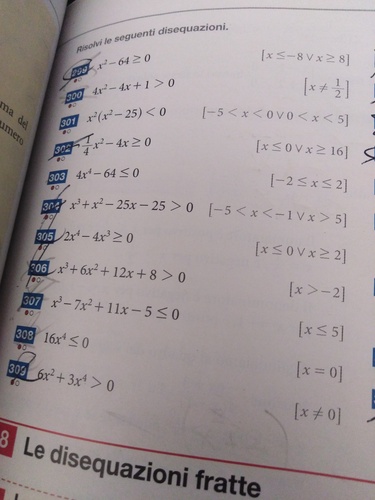 ma del
umero
Risolvi le seguenti disequazioni.
299 x² − 64 ≥ 0 [x ≤ −8 ∨ x ≥ 8]
300 4x² − 4x + 1 > 0 [x ≠ 1/2]
301 x²(x² − 25) < 0 [−5 < x < 0 ∨ 0 < x < 5]
302 1/4 x² − 4x ≥ 0 [x ≤ 0 ∨ x ≥ 16]
303 4x⁴ − 64 ≤ 0 [−2 ≤ x ≤ 2]
304 x³ + x² − 25x − 25 > 0 [−5 < x < −1 ∨ x > 5]
305 2x⁴ − 4x³ ≥ 0 [x ≤ 0 ∨ x ≥ 2]
306 x³ + 6x² + 12x + 8 > 0 [x > −2]
307 x³ − 7x² + 11x − 5 ≤ 0 [x ≤ 5]
308 16x⁴ ≤ 0 [x = 0]
309 6x² + 3x⁴ > 0 [x ≠ 0]
8 Le disequazioni fratte